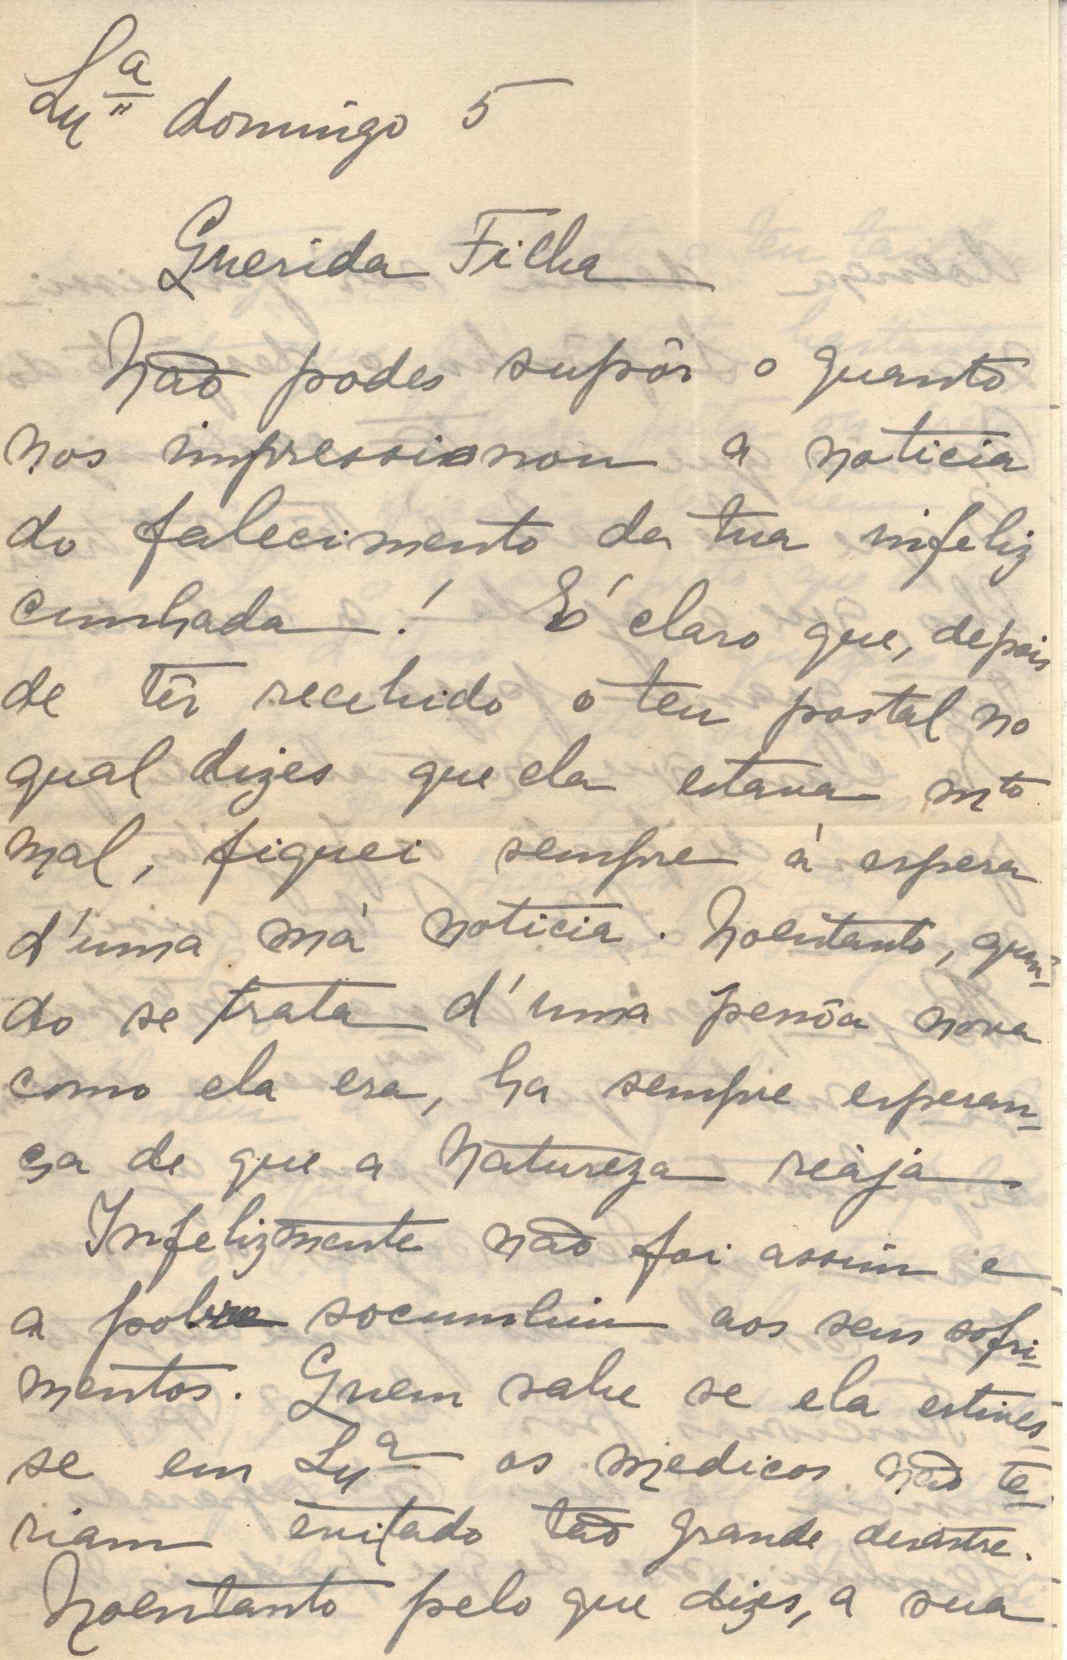 Lxª domingo 5
Querida Filha
Não podes supôr o quanto
nos impressionou a noticia
do falecimento da tua infeliz
cunhada! É claro que, depois
de têr recebido o teu postal no
qual dizes que ela estava mto
mal, fiquei sempre á espera
d'uma má noticia. Noentanto, quan-
do se trata d'uma pessôa nova
como ela era, ha sempre esperan-
ça de que a Natureza reaja.
Infelizmente não foi assim e
a pobre socumbiu aos seus sofri-
mentos. Quem sabe se ela estives-
se em Lxª os medicos não te-
riam evitado tão grande desastre.
Noentanto pelo que dizes, a sua